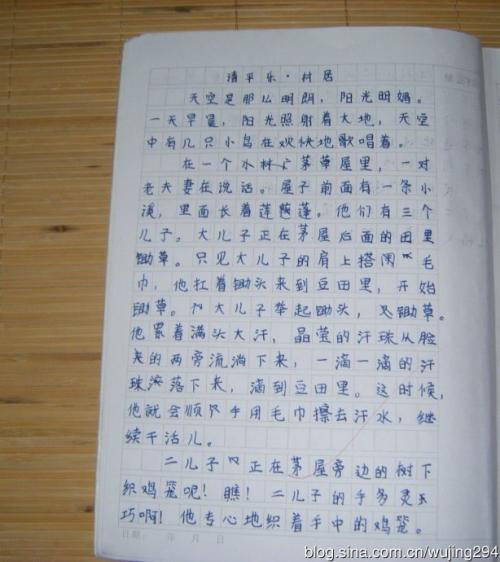 清平乐·村居
天空是那么明朗,阳光明媚。
一天早晨,阳光照射着大地,天空
中有几只小鸟在欢快地歌唱着。
在一个小村广茅草屋里,一对
老夫妻在说话。屋子前面有一条小
溪,里面长着莲蓬。他们有三个
儿子。大儿子正在茅屋后面的田里
锄草。只见大儿子的肩上搭着毛
巾,他扛着锄头来到豆田里,开始
锄草。大儿子举起锄头,锄草。
他累着满头大汗,晶莹的汗珠从脸
的两旁流淌下来,一滴一滴的汗
珠滚落下来,滴到豆田里。这时候,
他就会顺手用毛巾擦去汗水,继
续干活儿。
二儿子正在茅屋旁边的树下
织鸡笼呢!瞧!二儿子的手多灵
巧啊!他专心地织着手中的鸡笼。
日期: 年 月 日
blog.sina.com.cn/wujing294